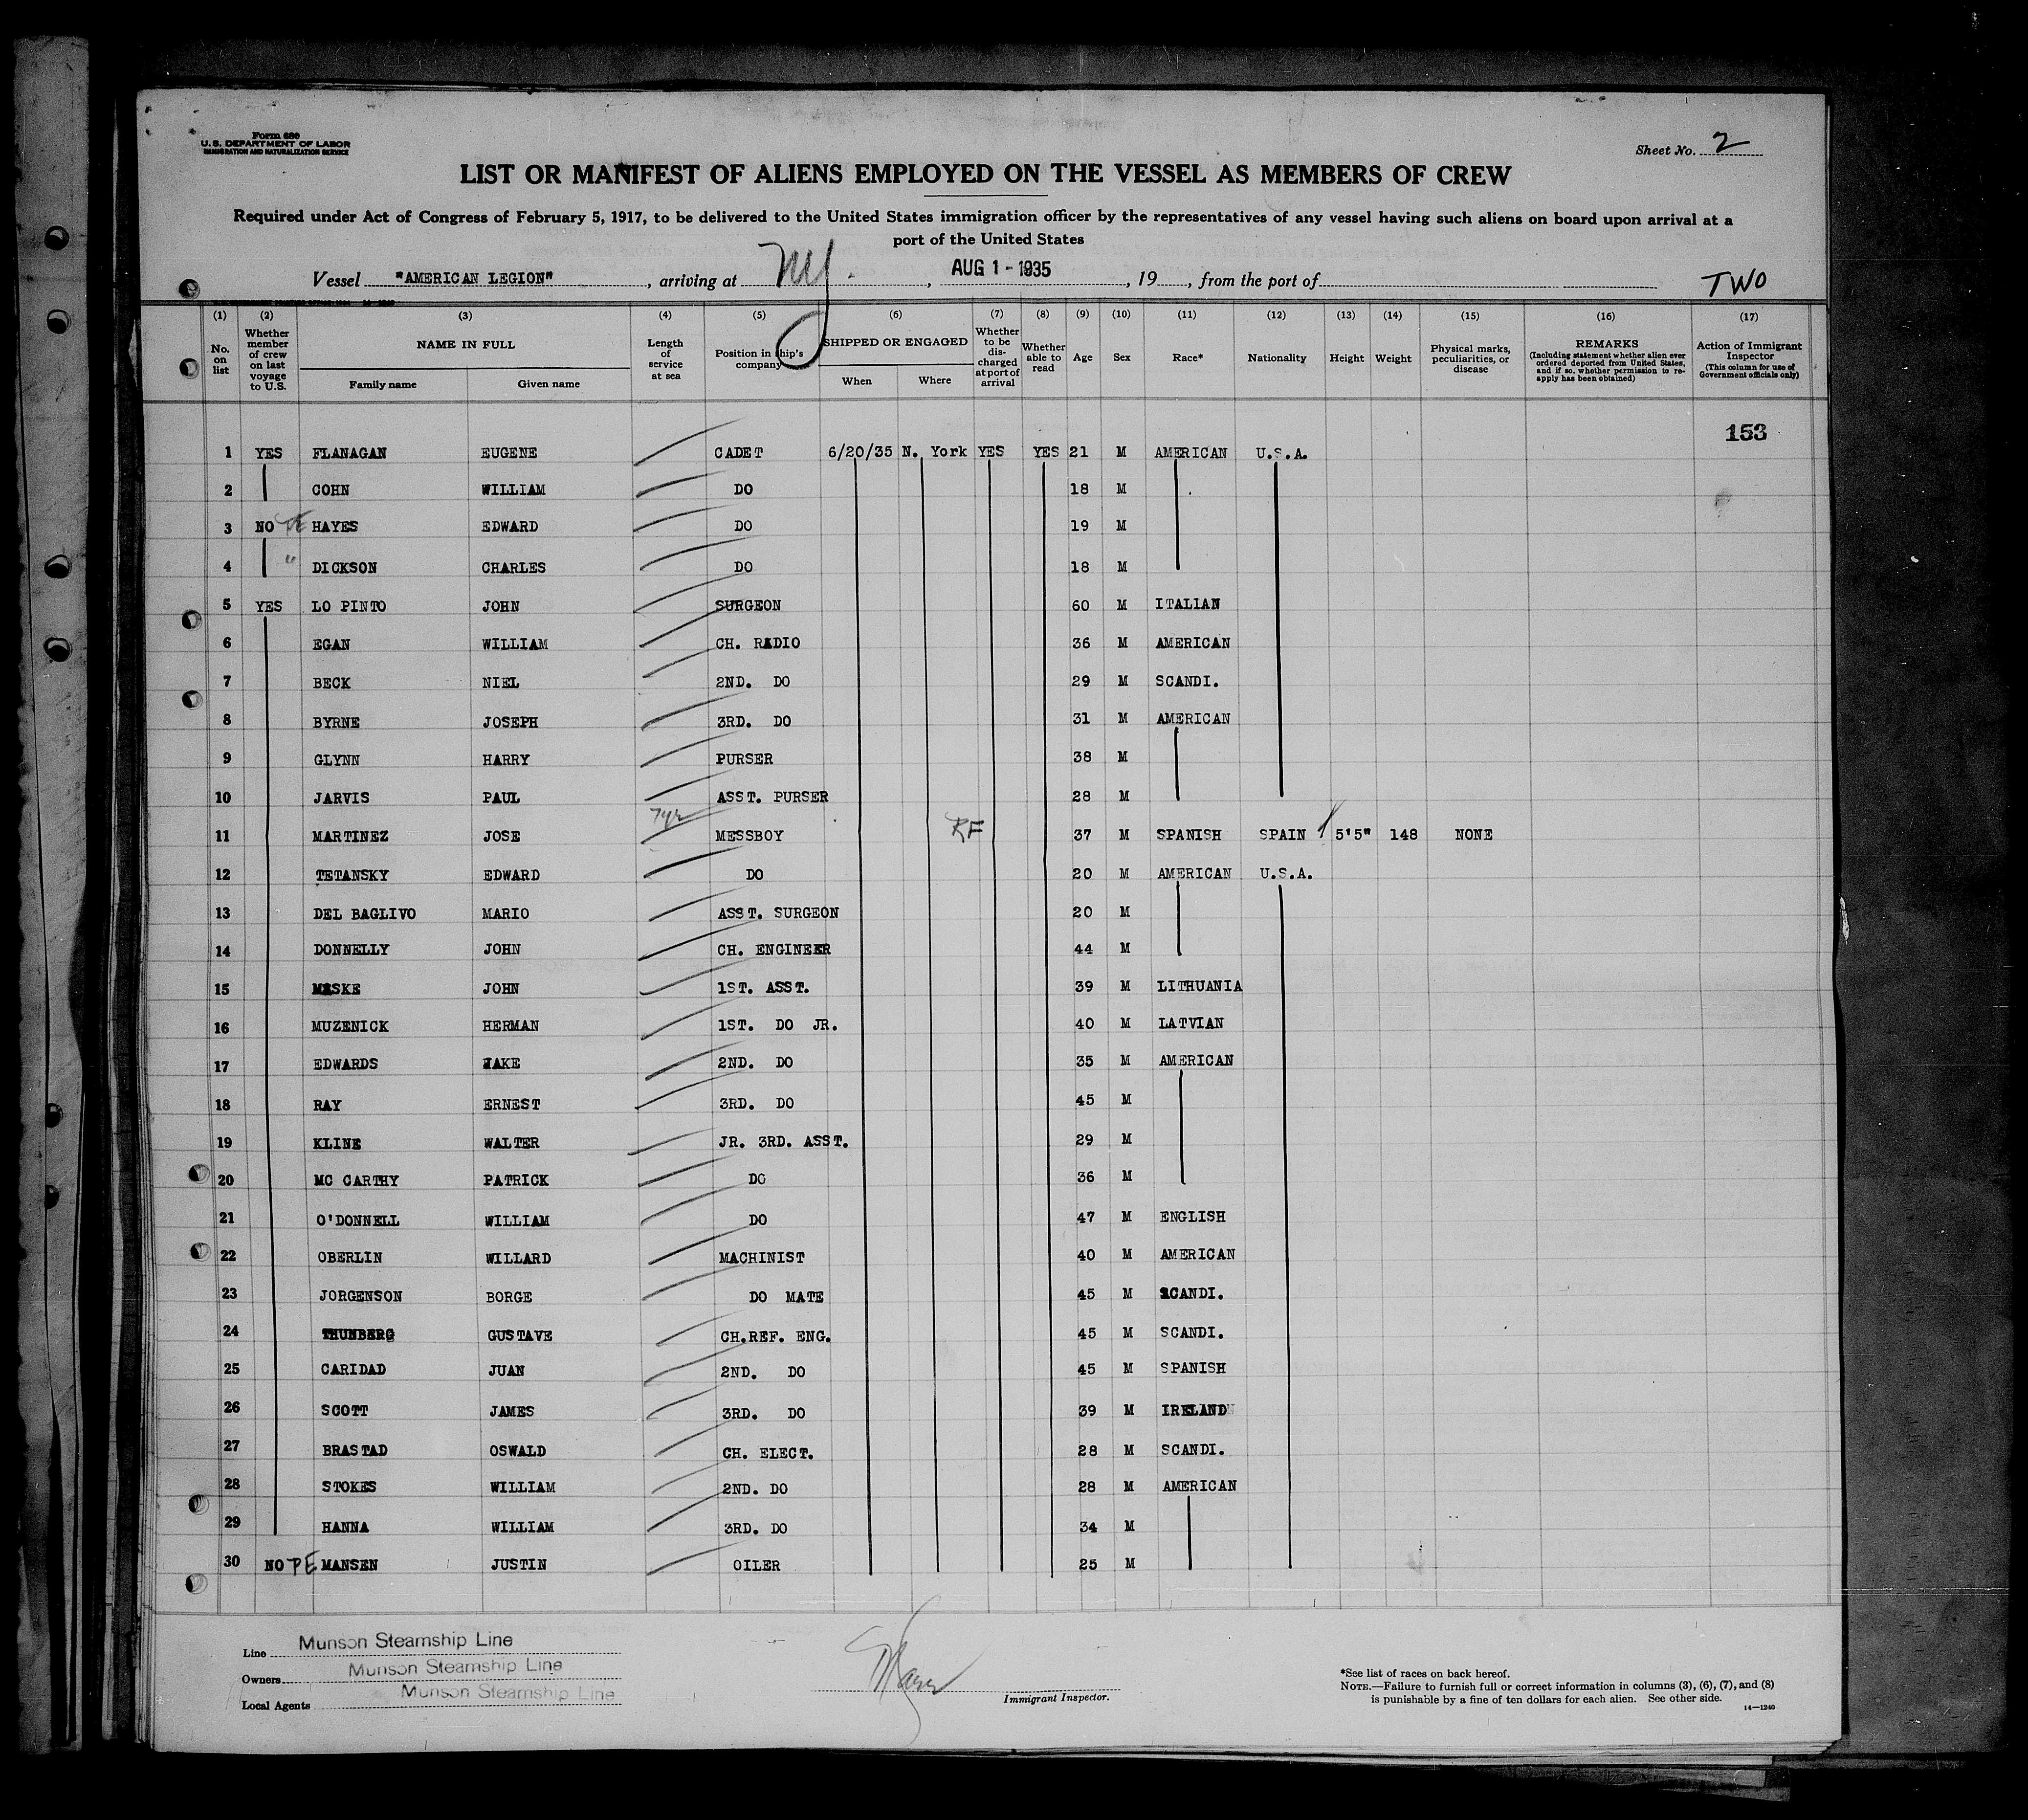 Form 680
U. S. DEPARTMENT OF LABOR
IMMIGRATION AND NATURALIZATION SERVICE
Sheet No. 2
LIST OR MANIFEST OF ALIENS EMPLOYED ON THE VESSEL AS MEMBERS OF CREW
Required under Act of Congress of February 5, 1917, to be delivered to the United States immigration officer by the representatives of any vessel having such aliens on board upon arrival at a
port of the United States
Vessel "AMERICAN LEGION", arriving at NY., AUG 1 - 1935, 19, from the port of TWO
(1) (2) (3) (4) (5) (6) (7) (8) (9) (10) (11) (12) (13) (14) (15) (16) (17)
No. on list Whether member of crew on last voyage to U.S. NAME IN FULL Family name Given name Length of service at sea Position in ship's company SHIPPED OR ENGAGED When Where Whether to be discharged at port of arrival Whether able to read Age Sex Race* Nationality Height Weight Physical marks, peculiarities, or disease REMARKS (Including statement whether alien ever ordered deported from United States, and if so, whether permission to reapply has been obtained) Action of Immigrant Inspector (This column for use of Government officials only)
153
1 YES FLANAGAN EUGENE CADET 6/20/35 N. York YES YES 21 M AMERICAN U.S.A.
2 COHN WILLIAM DO 18 M
3 NO HAYES EDWARD DO 19 M
4 " DICKSON CHARLES DO 18 M
5 YES LO PINTO JOHN SURGEON 60 M ITALIAN
6 EGAN WILLIAM CH. RADIO 36 M AMERICAN
7 BECK NIEL 2ND. DO 29 M SCANDI.
8 BYRNE JOSEPH 3RD. DO 31 M AMERICAN
9 GLYNN HARRY PURSER 38 M
10 JARVIS PAUL ASST. PURSER 28 M
11 MARTINEZ JOSE 7yr MESSBOY RF 37 M SPANISH SPAIN 5'5" 148 NONE
12 TETANSKY EDWARD DO 20 M AMERICAN U.S.A.
13 DEL BAGLIVO MARIO ASST. SURGEON 20 M
14 DONNELLY JOHN CH. ENGINEER 44 M
15 MASKE JOHN 1ST. ASST. 39 M LITHUANIA
16 MUZENICK HERMAN 1ST. DO JR. 40 M LATVIAN
17 EDWARDS JAKE 2ND. DO 35 M AMERICAN
18 RAY ERNEST 3RD. DO 45 M
19 KLINE WALTER JR. 3RD. ASST. 29 M
20 MC CARTHY PATRICK DO 36 M
21 O'DONNELL WILLIAM DO 47 M ENGLISH
22 OBERLIN WILLARD MACHINIST 40 M AMERICAN
23 JORGENSON BORGE DO MATE 45 M SCANDI.
24 THUNBERG GUSTAVE CH.REF. ENG. 45 M SCANDI.
25 CARIDAD JUAN 2ND. DO 45 M SPANISH
26 SCOTT JAMES 3RD. DO 39 M IRELAND
27 BRASTAD OSWALD CH. ELECT. 28 M SCANDI.
28 STOKES WILLIAM 2ND. DO 28 M AMERICAN
29 HANNA WILLIAM 3RD. DO 34 M
30 NO PE MANSEN JUSTIN OILER 25 M
Line Munson Steamship Line
Owners Munson Steamship Line
Local Agents Munson Steamship Line
Immigrant Inspector.
*See list of races on back hereof.
NOTE.—Failure to furnish full or correct information in columns (3), (6), (7), and (8)
is punishable by a fine of ten dollars for each alien. See other side.
14—1240